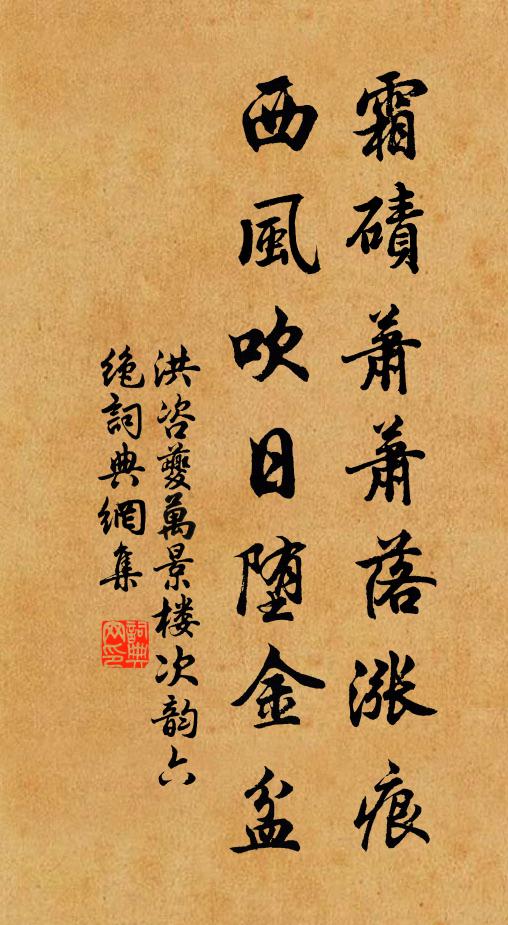 霜磧萧萧落漲痕
西風吹日堕金盆
洪咨夔萬景楼次韵六
绝詞典網集
詞典网印